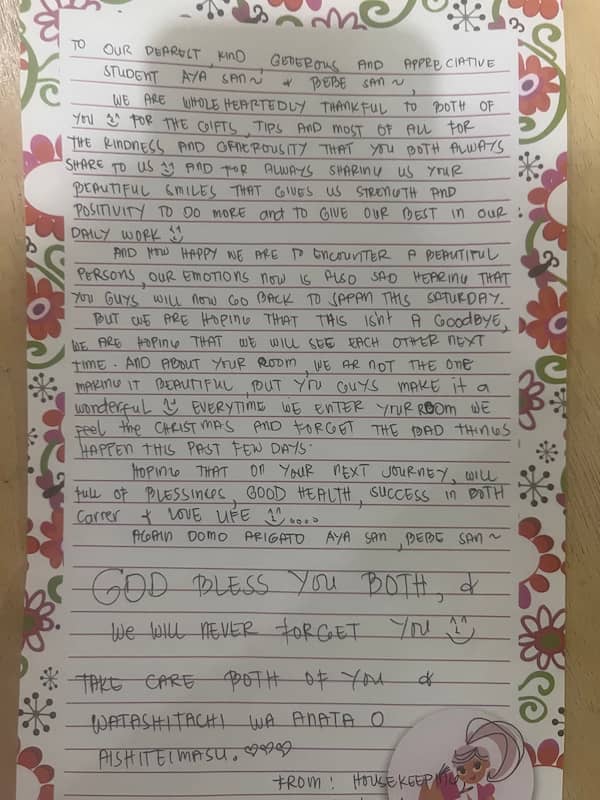 TO OUR DEAREST, KIND, GENEROUS AND APPRECIATIVE
STUDENT AYA SAN~ & BEBE SAN~,
WE ARE WHOLEHEARTEDLY THANKFUL TO BOTH OF
YOU FOR THE GIFTS, TIPS AND MOST OF ALL FOR
THE KINDNESS AND GENEROUSITY THAT YOU BOTH ALWAYS
SHARE TO US AND FOR ALWAYS SHARING US YOUR
BEAUTIFUL SMILES THAT GIVES US STRENGTH AND
POSITIVITY TO DO MORE and TO GIVE OUR BEST IN OUR
DAILY WORK
AND HOW HAPPY WE ARE TO ENCOUNTER A BEAUTIFUL
PERSONS, OUR EMOTIONS NOW IS ALSO SAD HEARING THAT
YOU GUYS WILL NOW GO BACK TO JAPAN THIS SATURDAY.
BUT WE ARE HOPING THAT THIS ISNT A GOODBYE,
WE ARE HOPING THAT WE WILL SEE EACH OTHER NEXT
TIME. AND ABOUT YOUR ROOM, WE AR NOT THE ONE
MAKING IT BEAUTIFUL, BUT YOU GUYS MAKE it a
wonderful EVERYTIME WE ENTER YOUR ROOM WE
FEEL the CHRISTMAS AND FORGET THE BAD THINGS
HAPPEN THIS PAST FEW DAYS.
HOPING THAT ON YOUR NEXT JOURNEY, WILL
full OF BLESSINGS, GOOD HEALTH, SUCCESS in BOTH
Carrer & LOVE LIFE ....
AGAIN DOMO ARIGATO AYA SAN, BEBE SAN~
GOD BLESS YOU BOTH, &
WE WILL NEVER FORGET YOU
TAKE CARE BOTH OF YOU &
WATASHITACHI WA ANATA O
AISHITEIMASU. ♡♡♡
FROM: HOUSEKEEPING